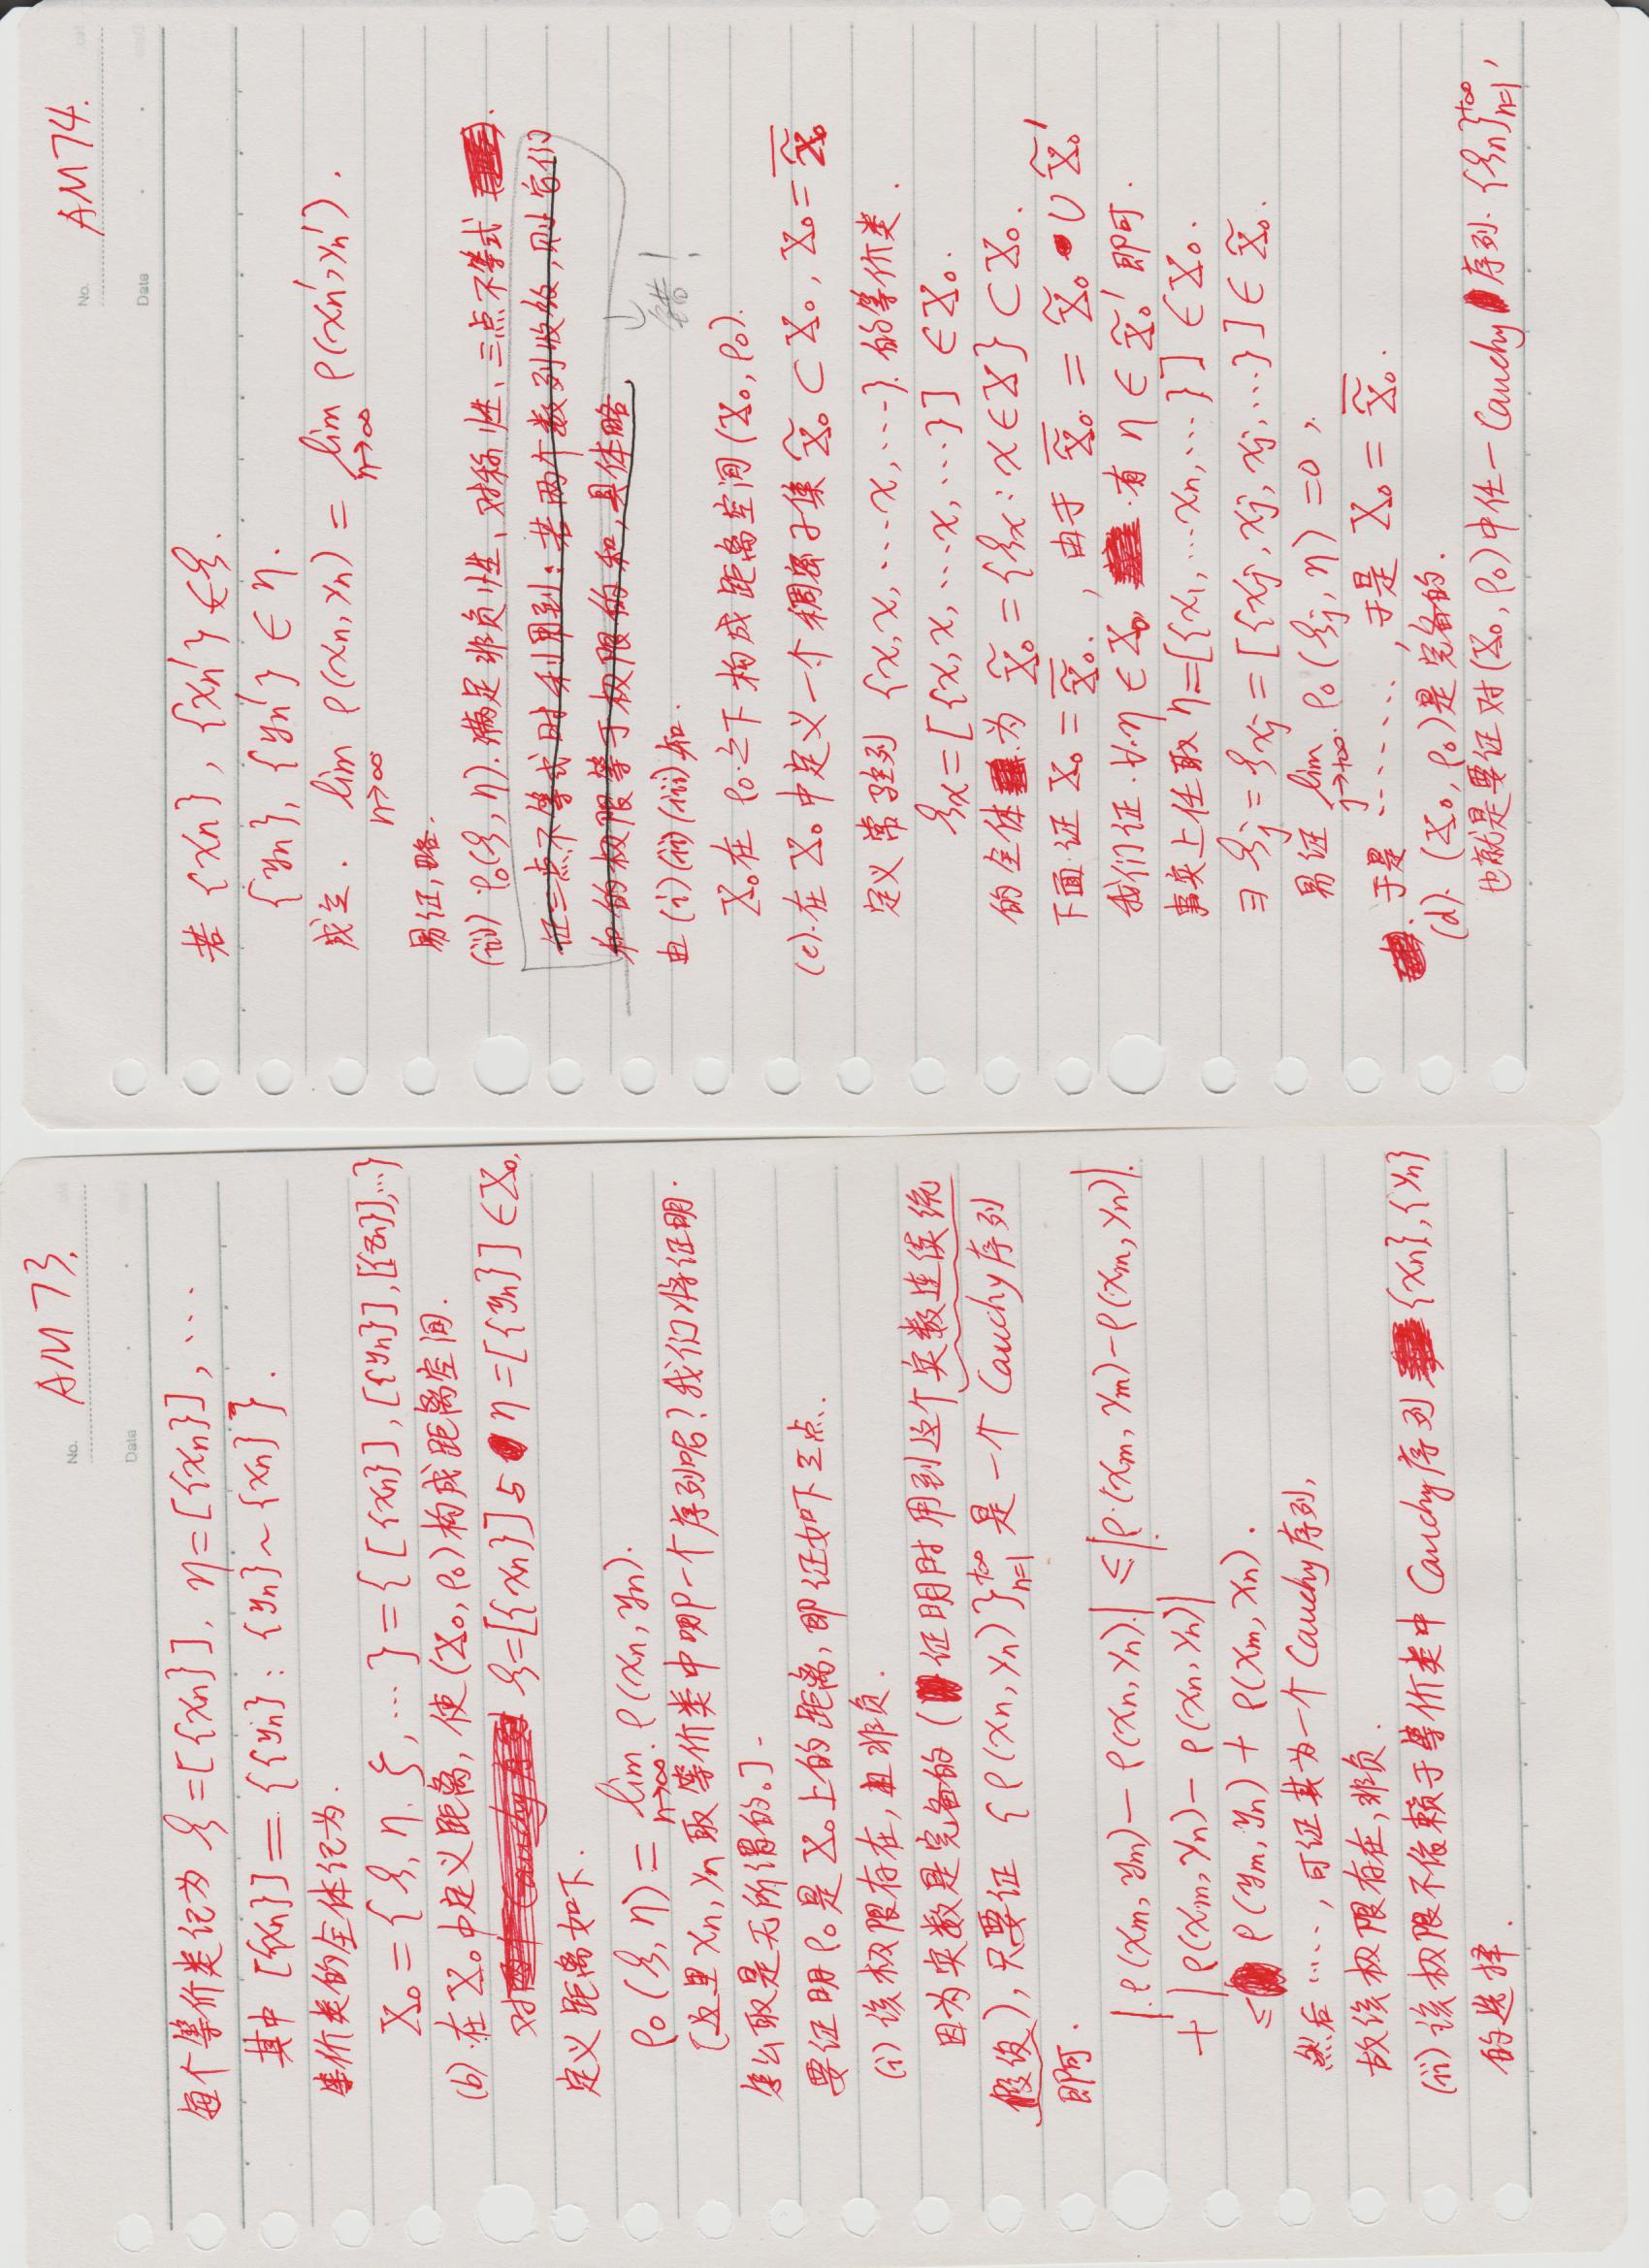 No. AM 73.
Date
每个等价类记为 ξ=[{xn}], η=[{xn}], ⋯
其中 [{xn}] = {{yn}: {yn}~{xn}}.
等价类的全体记为.
X₀ = {ξ, η, ζ, ⋯} = {[{xn}], [{yn}], [{zn}],⋯}
(b). 在 X₀ 中定义距离, 使 (X₀, ρ₀) 构成距离空间.
对 ξ=[{xn}] 与 η=[{yn}] ∈ X₀,
定义距离如下.
ρ₀(ξ, η) = lim n→∞ ρ(xn, yn).
[这里 xn, yn 取等价类中哪一个序列呢? 我们将证明.
怎么取是无所谓的。]
要证明 ρ₀ 是 X₀ 上的距离, 即证如下三点.
(i) 该极限存在, 且非负.
因为实数是完备的 (证明时用到这个实数连续统
假设), 只要证 {ρ(xn, yn)}n=1^{+∞} 是一个 Cauchy 序列
即可.
|ρ(xm, ym) − ρ(xn, yn)| ≤ |ρ(xm, ym) − ρ(xm, yn)|
+ |ρ(xm, yn) − ρ(xn, yn)|
≤ ρ(ym, yn) + ρ(xm, xn).
然后 ⋯⋯, 可证其为一个 Cauchy 序列,
故该极限存在, 非负.
(ii) 该极限不依赖于等价类中 Cauchy 序列 {xn}, {yn}
的选择.
No. AM 74.
Date
若 {xn}, {xn′} ∈ ξ.
{yn}, {yn′} ∈ η.
成立. lim n→∞ ρ(xn, yn) = lim n→∞ ρ(xn′, yn′).
易证, 略.
(iii) ρ₀(ξ, η). 满足非负性、对称性、三点不等式.
证三点不等式时利用到: 若两个数列收敛, 则它们
和的极限等于极限的和, 具体略.
错!
由 (i) (ii) (iii) 知.
X₀ 在 ρ₀ 之下构成距离空间 (X₀, ρ₀).
(c). 在 X₀ 中定义一个稠密子集 X̃₀ ⊂ X₀, X₀ = X̃̅₀
定义常驻列 {x, x, ⋯x, ⋯} 的等价类.
ξx = [{x, x, ⋯x, ⋯}] ∈ X₀.
的全体为 X̃₀ = {ξx : x∈X} ⊂ X₀.
下面证 X₀ = X̃̅₀, 由于 X̃̅₀ = X̃₀ ∪ X̃₀′
我们证. ∀η∈X₀, 有 η ∈ X̃₀′ 即可.
事实上任取 η=[{x₁, ⋯xn, ⋯}] ∈ X₀.
∃ ξj = ξxj = [{xj, xj, xj, ⋯}] ∈ X̃₀.
易证 lim j→+∞ ρ₀(ξj, η) = 0,
于是 ⋯⋯⋯, 于是 X₀ = X̃̅₀.
(d). (X₀, ρ₀) 是完备的.
也就是要证对 (X₀, ρ₀) 中任一 Cauchy 序列 {ξn}n=1^{+∞},